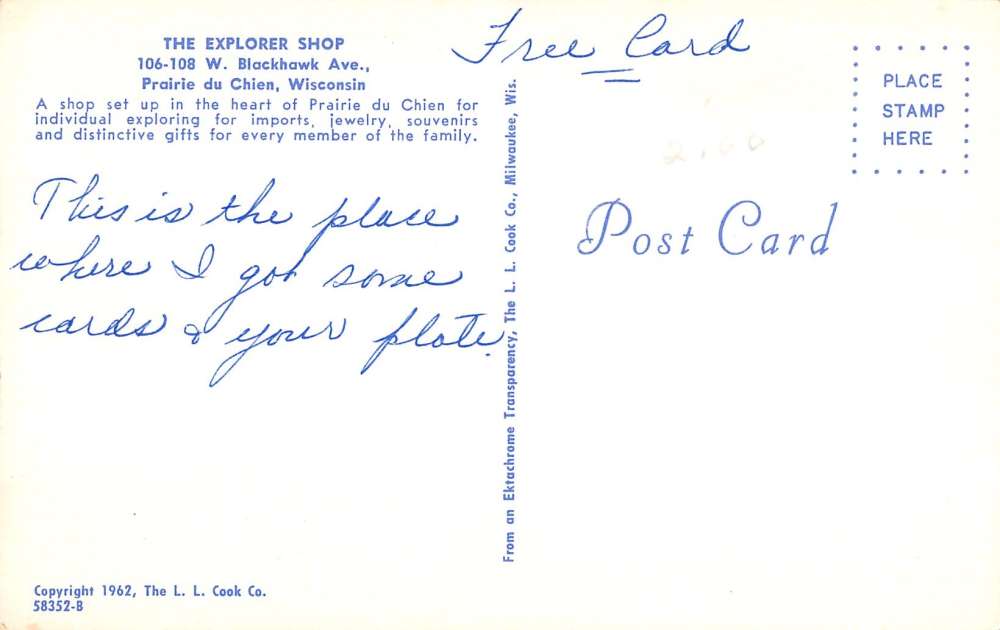 THE EXPLORER SHOP
106-108 W. Blackhawk Ave.,
Prairie du Chien, Wisconsin
A shop set up in the heart of Prairie du Chien for
individual exploring for imports, jewelry, souvenirs
and distinctive gifts for every member of the family.
This is the place
where I got some
cards & your plate.
Copyright 1962, The L. L. Cook Co.
58352-B
From an Ektachrome Transparency, The L. L. Cook Co., Milwaukee, Wis.
Free Card
2.00
PLACE
STAMP
HERE
Post Card